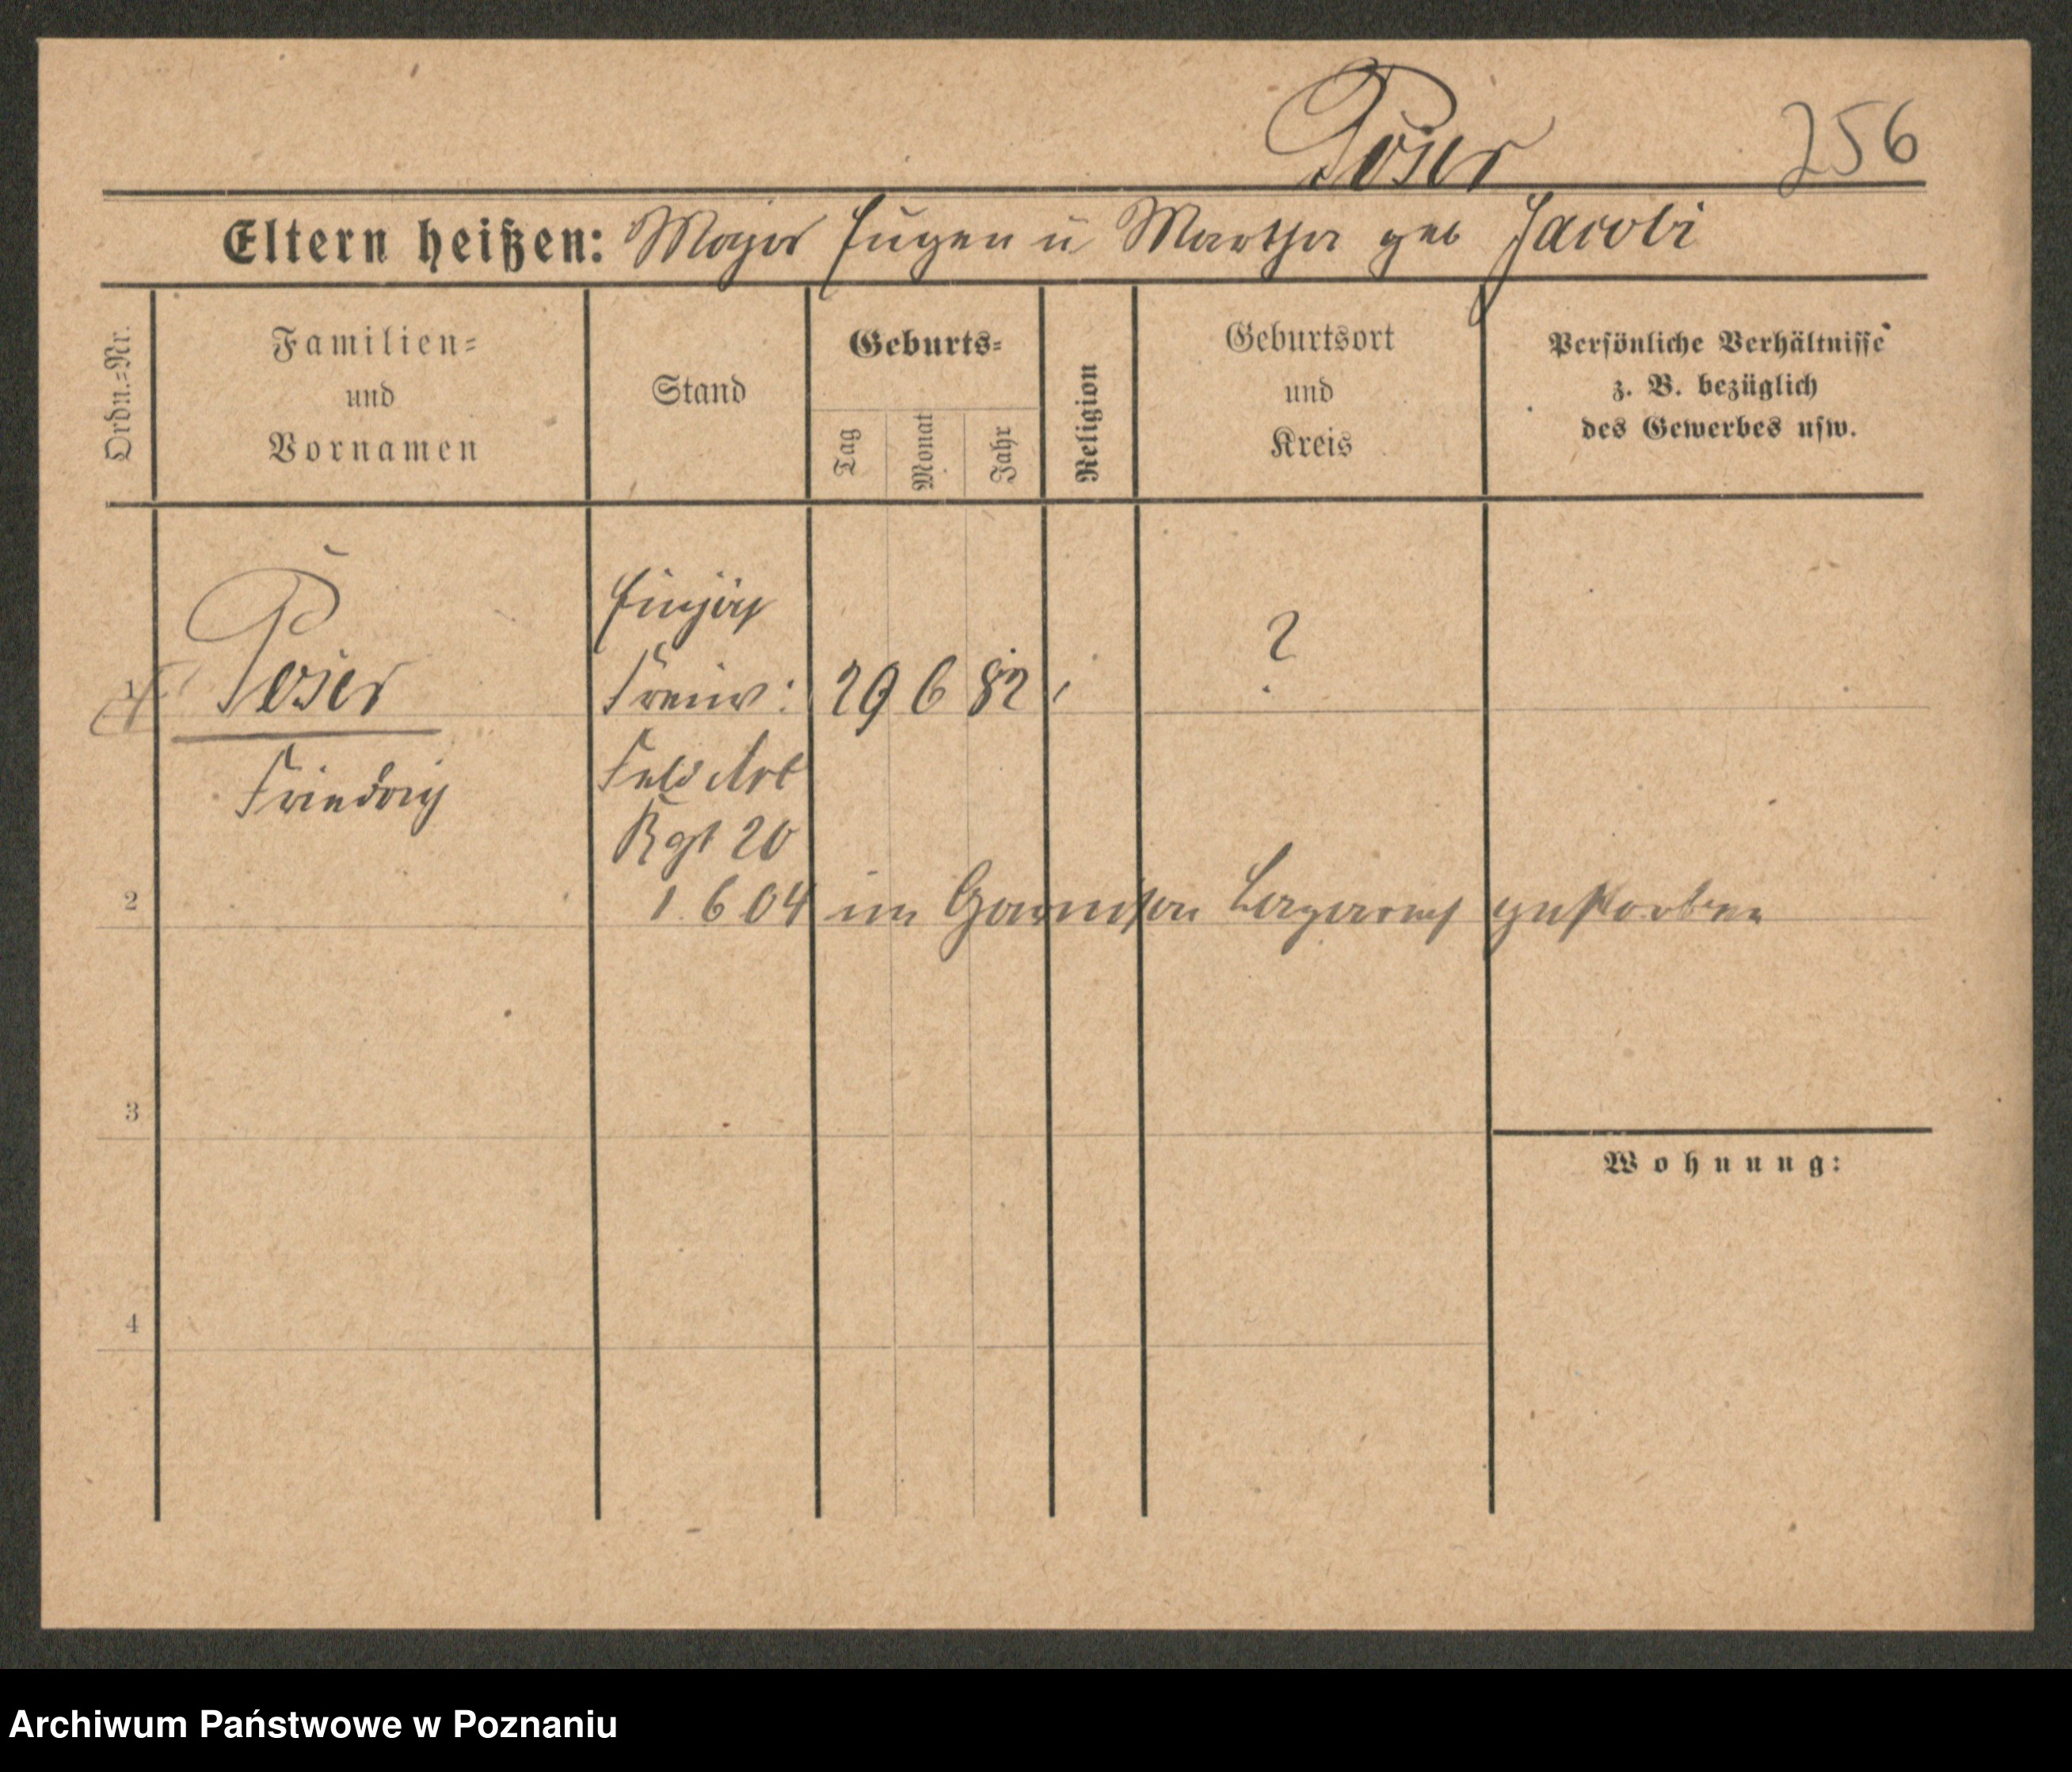 Poser 256
Eltern heißen: Major Eugen u Martha geb Jacobi
Ordn.=Nr.
Familien= und Vornamen
Stand
Geburts=
Tag Monat Jahr
Religion
Geburtsort und Kreis
Persönliche Verhältnisse
z. B. bezüglich
des Gewerbes usw.
Einjäh
1 Poser Freiw: 29 6 82 ?
Friedrich Feld Art
Rgt 20
2 1 6 04 im Garnison Lazareth gestorben
3
Wohnung:
4
Archiwum Państwowe w Poznaniu